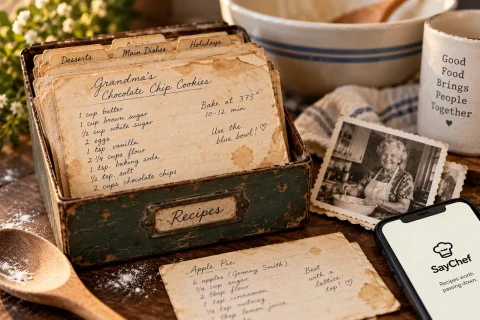 Desserts
Main Dishes
Holidays
Grandma's
Chocolate Chip Cookies
1 cup butter
1 cup brown sugar
½ cup white sugar
2 eggs
1 tsp vanilla
2 ¼ cups flour
1 tsp. baking soda
½ tsp. salt
2 cups chocolate chips
Bake at 375°
10-12 min
Use the
blue bowl! ♡
Recipes
Apple Pie
6 apples (Granny Smith)
¾ cup sugar
2 tbsp flour
1 tsp cinnamon
¼ tsp nutmeg
1 tbsp lemon juice
Best
with a
lattice
top! ♡
Good
Food
Brings
People
Together
♥
SayChef
Recipes worth
passing down.